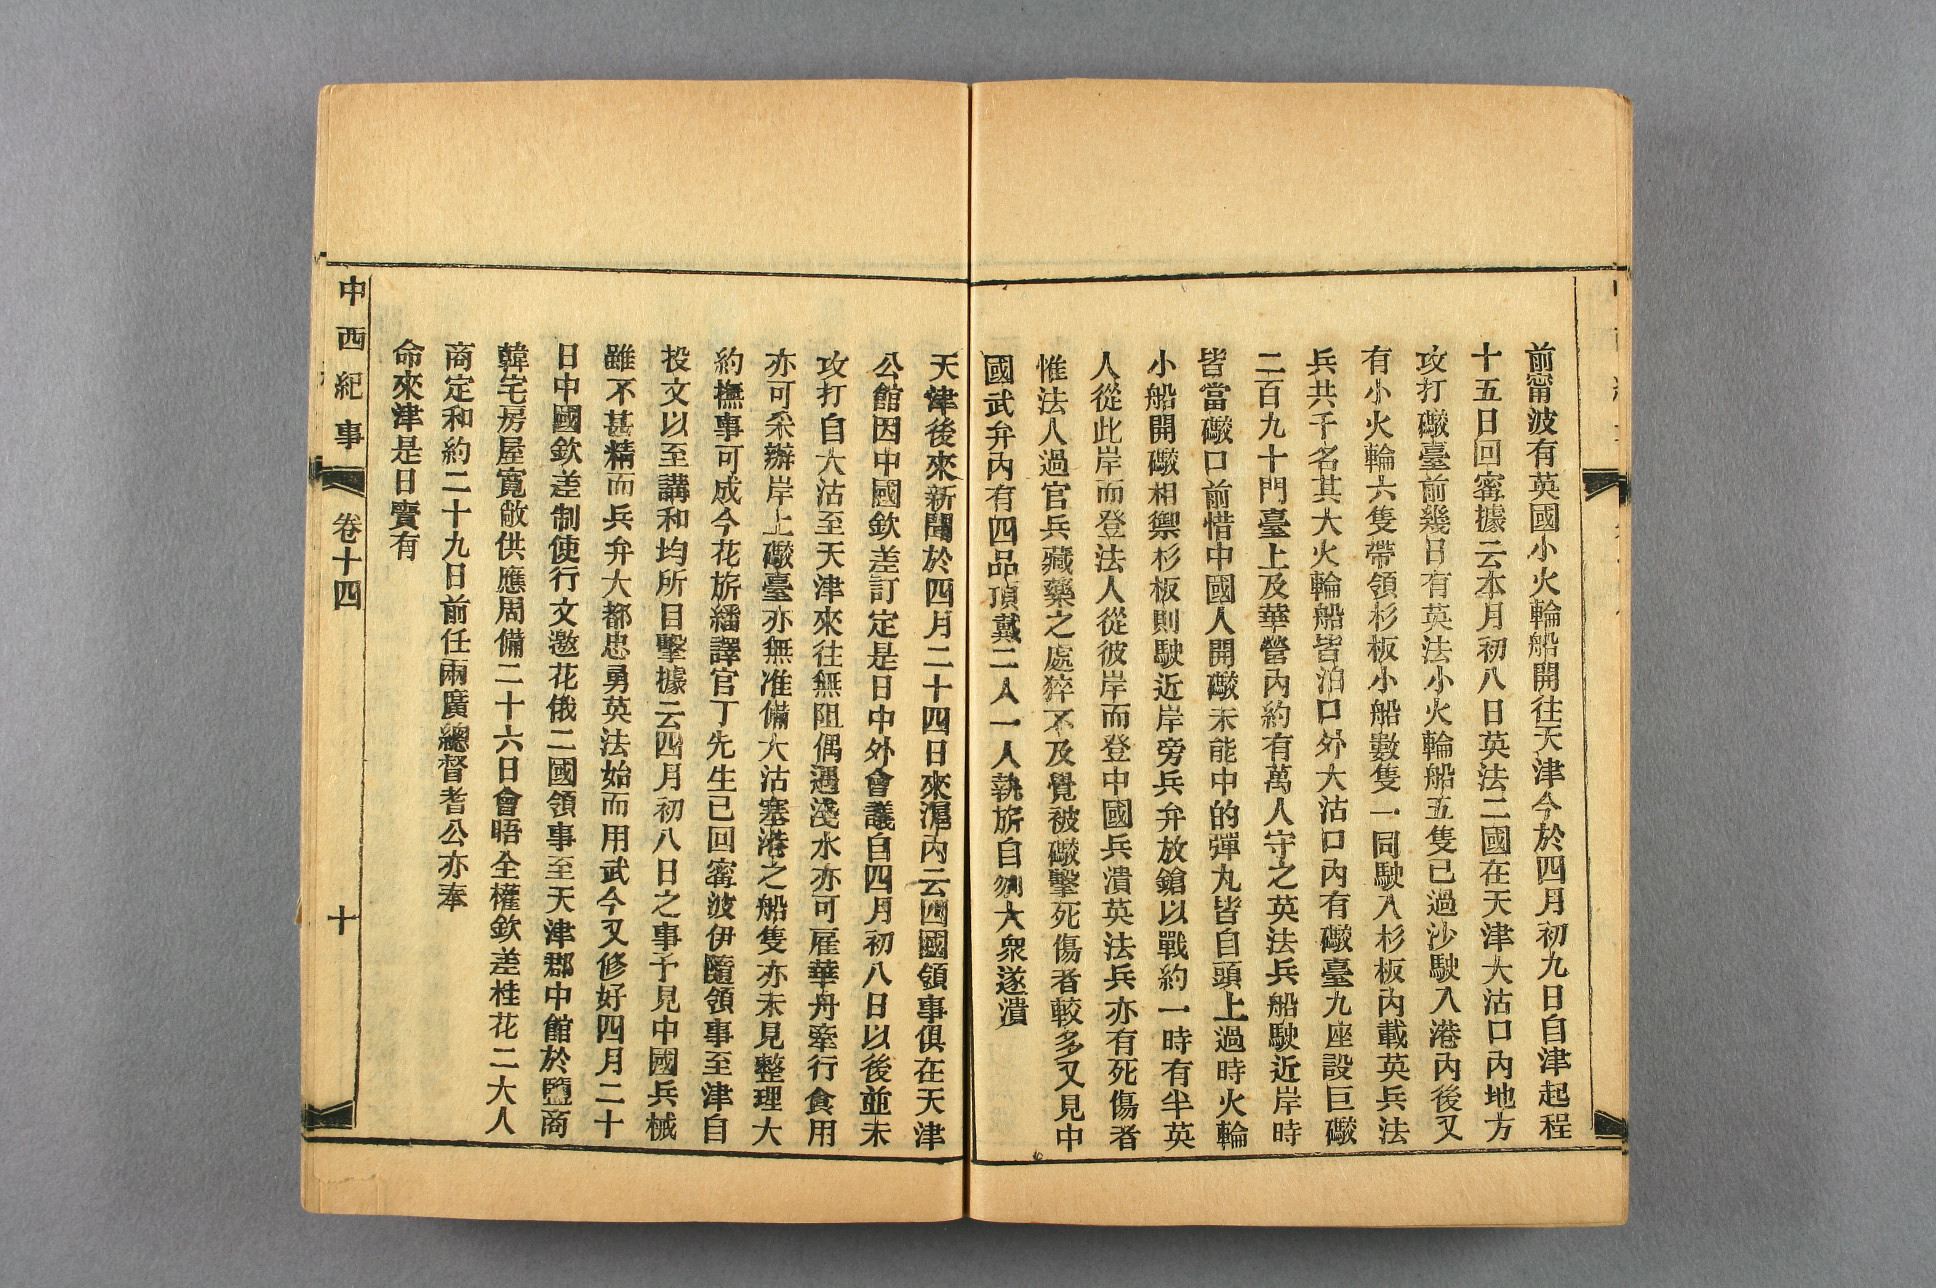 前甯波有英國小火輪船開往天津今於四月初九日自津起程
十五日回甯據云本月初八日英法二國在天津大沽口內地方
攻打礮臺前幾日有英法小火輪船五隻已過沙駛入港內後又
有小火輪六隻帶領杉板小船數隻一同駛入杉板內載英兵法
兵共千名其大火輪船皆泊口外大沽口內有礮臺九座設巨礮
二百九十門臺上及華營內約有萬人守之英法兵船駛近岸時
皆當礮口前惜中國人開礮未能中的彈丸皆自頭上過時火輪
小船開礮相禦杉板則駛近岸旁兵弁放鎗以戰約一時有半英
人從此岸而登法人從彼岸而登中國兵潰英法兵亦有死傷者
惟法人過官兵藏藥之處猝不及覺被礮擊死傷者較多又見中
國武弁內有四品頂戴二人一人執旂自刎大衆遂潰
天津後來新聞於四月二十四日來滬內云四國領事俱在天津
公館因中國欽差訂定是日中外會議自四月初八日以後並未
攻打自大沽至天津來往無阻偶遇淺水亦可雇華舟牽行食用
亦可采辦岸上礮臺亦無准備大沽塞港之船隻亦未見整理大
約撫事可成今花旂繙譯官丁先生已回甯波伊隨領事至津自
投文以至講和均所目擊據云四月初八日之事予見中國兵械
雖不甚精而兵弁大都忠勇英法始而用武今又修好四月二十
日中國欽差制使行文邀花俄二國領事至天津郡中館於鹽商
韓宅房屋寬敞供應周備二十六日會晤全權欽差桂花二大人
商定和約二十九日前任兩廣總督耆公亦奉
命來津是日實有
中西紀事 卷十四 十